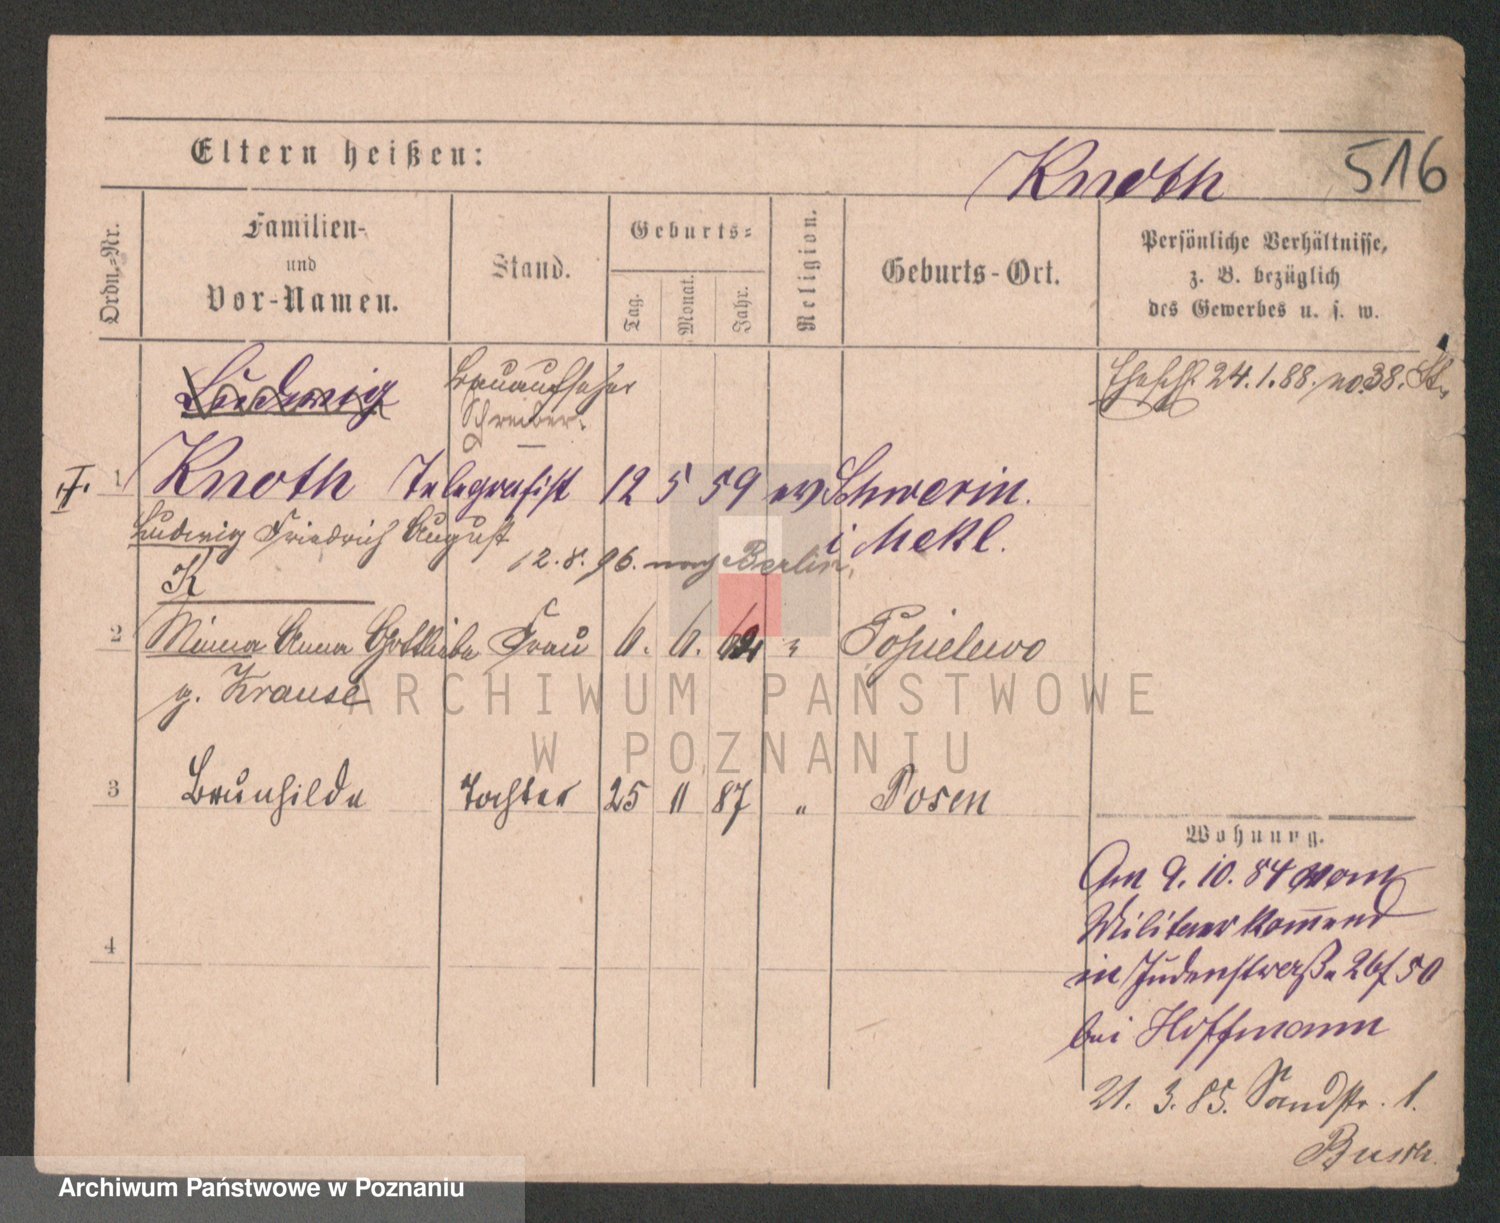 Eltern heißen:
Knoth
516
Ordn.-Nr.
Familien-
und
Vor-Namen.
Stand.
Geburts-
Tag.
Monat.
Jahr.
Religion.
Geburts-Ort.
Persönliche Verhältnisse,
z. B. bezüglich
des Gewerbes u. s. w.
Ludwig
Bauaufseher
Schreiber.
Ehesch. 24.1.88. No 38. St.
1 Knoth Telegrafist 12 5 59 ev Schwerin
i Mekl.
Ludwig Friedrich August
12.8.96. nach Berlin.
K
2 Minna Anna Gottliebe Frau 6. 6. 62 " Popielewo
g. Krause
3 Brunhilde Tochter 25 11 87 " Posen
Wohnung.
Am 9. 10. 84 vom
Militaer komend
in Judenstraße 26/50
bei Hoffmann
21. 3. 85. Sandstr. 1.
4
ARCHIWUM PAŃSTWOWE
W POZNANIU
Archiwum Państwowe w Poznaniu